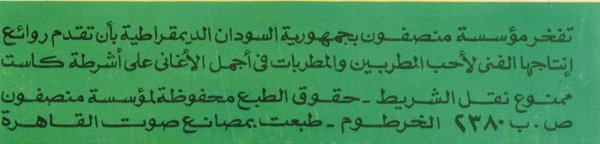 تفخر مؤسسة منصفون بجمهورية السودان الديمقراطية بأن تقدم روائع
إنتاجها الفنى لأحب المطربين والمطربات فى أجمل الأغانى على أشرطة كاست
ممنوع نقل الشريط - حقوق الطبع محفوظة لمؤسسة منصفون
ص . ب ٢٣٨٠ الخرطوم - طبعت بمصانع صوت القاهرة